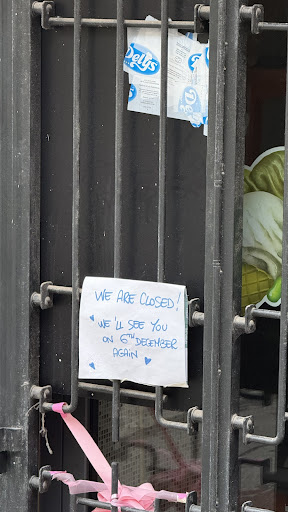 Delys
WE ARE CLOSED!
WE'LL SEE YOU
ON 6TH DECEMBER
AGAIN